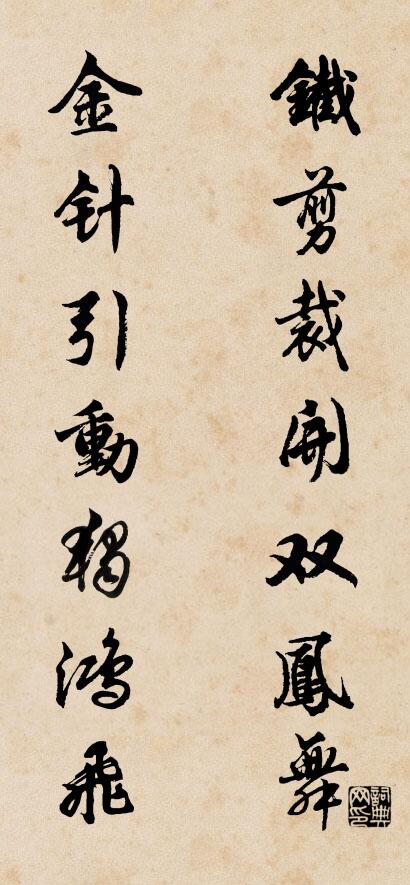 鐵剪裁開双鳳舞
金针引動獨鴻飛
詞典网印